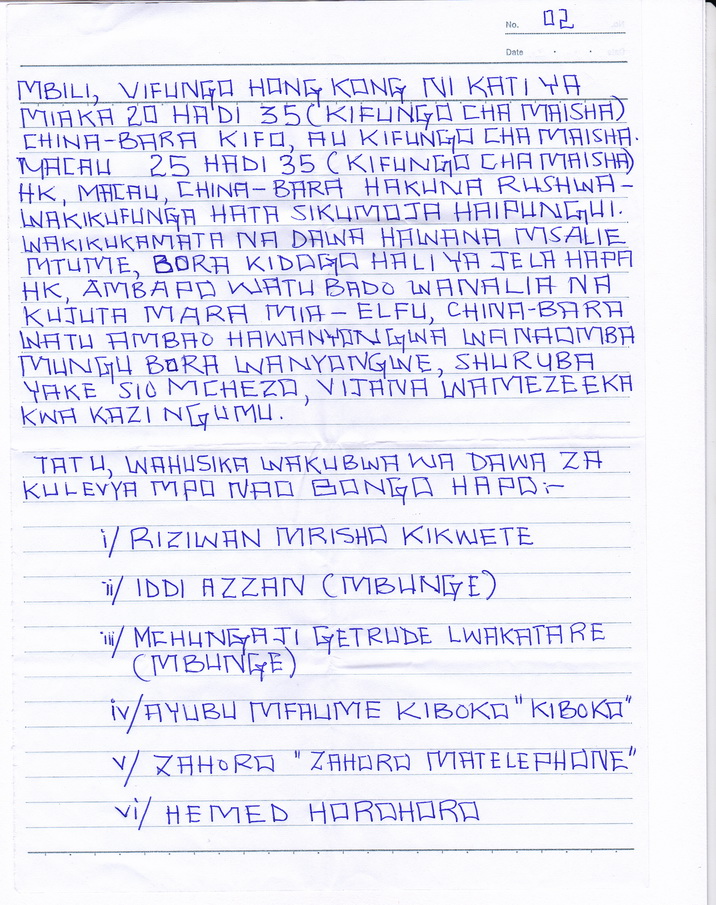 No. 02
Date
MBILI, VIFUNGO HONG KONG NI KATI YA
MIAKA 20 HADI 35 (KIFUNGO CHA MAISHA)
CHINA-BARA KIFO, AU KIFUNGO CHA MAISHA.
MACAU 25 HADI 35 (KIFUNGO CHA MAISHA)
HK, MACAU, CHINA-BARA HAKUNA RUSHWA-
WAKIKUFUNGA HATA SIKUMOJA HAIPUNGUI.
WAKIKUKAMATA NA DAWA HAWANA MSALIE
MTUME, BORA KIDOGO HALI YA JELA HAPA
HK, AMBAPO WATU BADO WANALIA NA
KUJUTA MARA MIA-ELFU, CHINA-BARA
WATU AMBAO HAWANYONGWA WANAOMBA
MUNGU BORA WANYONGWE, SHURUBA
YAKE SIO MCHEZO, VIJANA WAMEZEEKA
KWA KAZI NGUMU.
TATU, WAHUSIKA WAKUBWA WA DAWA ZA
KULEVYA MPO NAO BONGO HAPO:-
i/ RIZIWAN MRISHO KIKWETE
ii/ IDDI AZZAN (MBUNGE)
iii/ MCHUNGAJI GETRUDE LWAKATARE
(MBUNGE)
iv/ AYUBU MFAUME KIBOKO "KIBOKO"
v/ ZAHORO "ZAHORO MATELEPHONE"
vi/ HEMED HOROHORO